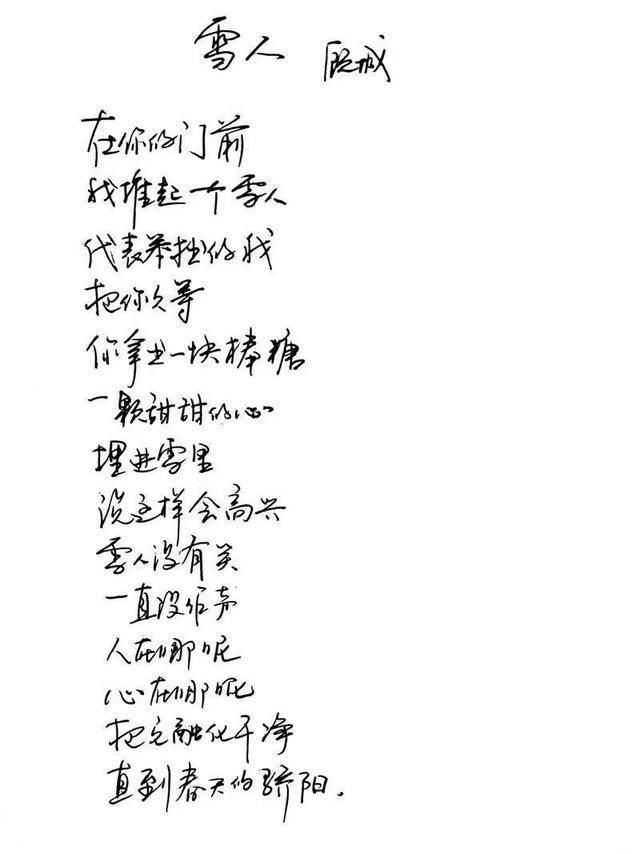 雪人 顾城
在你的门前
我堆起一个雪人
代表笨拙的我
把你久等
你拿出一块棒糖
一颗甜甜的心
埋进雪里
说这样会高兴
雪人没有笑
一直没作声
人在哪呢
心在哪呢
把它融化干净
直到春天的骄阳.